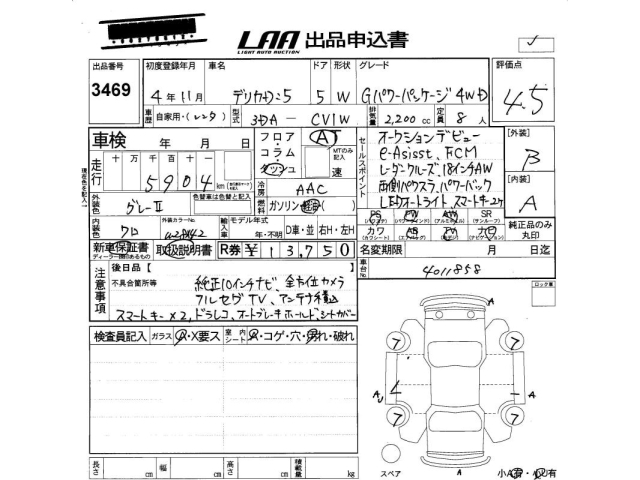 LAA 出品申込書
LIGHT AUTO AUCTION
出品番号 初度登録年月 車名 ドア 形状 グレード 評価点
3469 4年11月 デリカD:5 5 W Gパワーパッケージ 4WD 4.5
車歴 自家用・(レンタ) 型式 3DA-CV1W 排気量 2,200 cc 定員 8人
車検 年 月 日 フロア・コラム・ダッシュ AT MTのみ記入 速
走行 十万 万 千 百 十 一
5904 km
冷房 AAC
外装色 グレーII 色替車は色替と記入 燃料 ガソリン・軽油
内装色 クロ 外装カラーNo. 輸入車 モデル年式 年・不明 D車・並 右H・左H
新車保証書 取扱説明書 R券 ¥13,750
ディーラー欄のあるもの
セールスポイント オークションデビュー
e-Asisst、FCM
レーダークルーズ、18インチAW
両側パワスラ、パワーバック
LEDオートライト、スマートキー
PS PW AW SR
(パワステ) (パワーウインド) (アルミホイル) (サンルーフ)
カワ AB ナビ
(カワシート) (エアバッグ) (ナビゲーション)
[外装]
B
[内装]
A
純正品のみ丸印
名変期限 月 日迄
車台No. 4011858
注意事項 後日品【 】
不具合箇所等 純正10インチナビ、全方位カメラ
フルセグTV、アンテナ
スマートキー×2、ドラレコ、オートブレーキホールド、シートカバー
検査員記入 ガラス A・X要ス 室内シート A・コゲ・穴・汚れ・破れ
長さ cm 幅 cm 高さ cm 積載量 kg
ロック車
7 7
A A
7 7
A A
スペア A 小A有・小U有